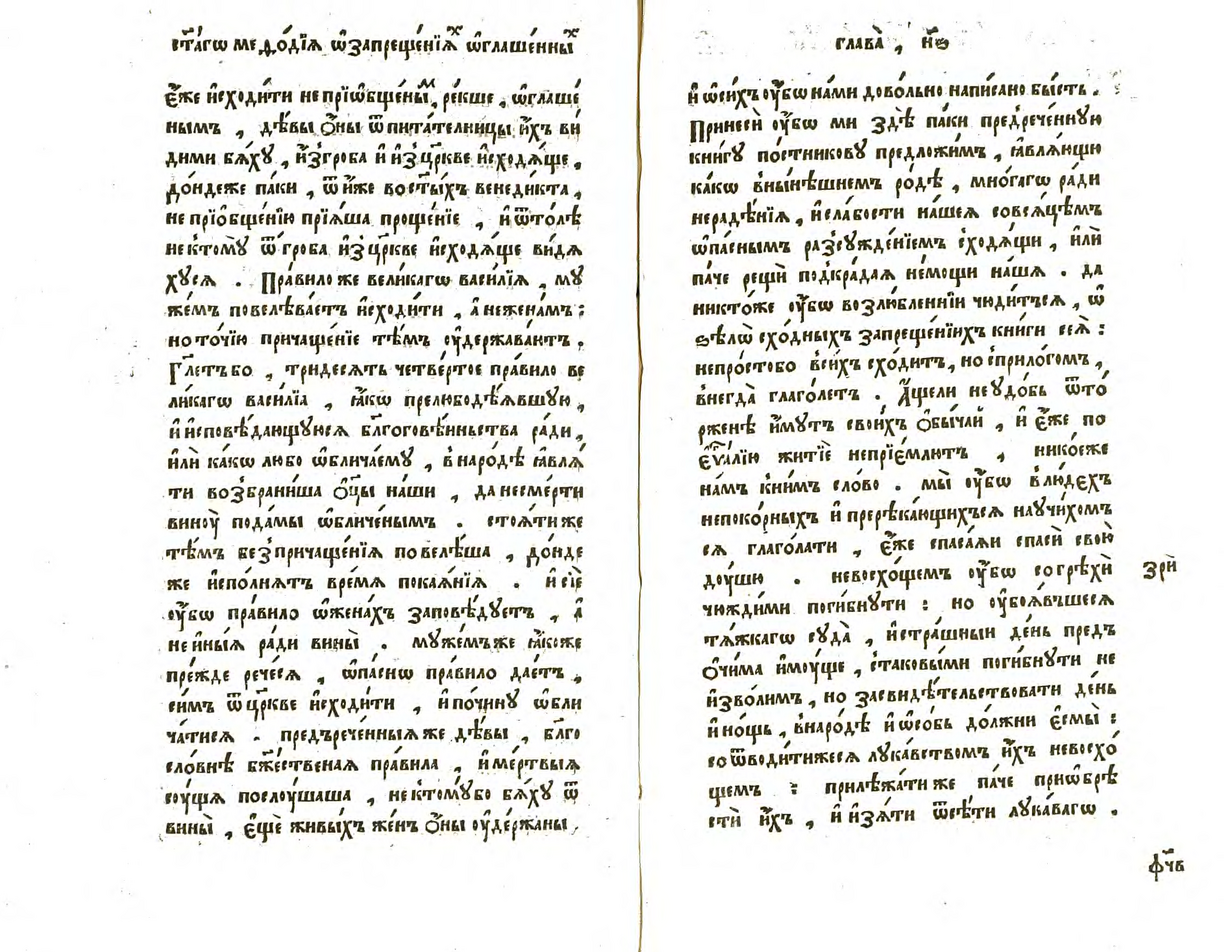 ст҃а́гѡ меѳо́дїѧ ѡ҆запреще́нїѧⷯ ѡ҆глаше́нныⷯ
є҆́же и҆сходи́ти непрїѡ҆бще́ныⷨ, ре́кше, ѡ҆глаше́
нымъ , дѣ́вы о҆́ны ѿпита́телницы и҆́хъ ви́
дими бѧ́хꙋ , и҆з̾гроба и҆ и҆зцр҃кве и҆сходѧ́ще ,
до́ндеже па́ки , ѿ и҆́же вост҃ы́хъ венеди́кта ,
не прїо҆бще́нїю прїѧ́ша проще́нїе , и҆ ѿто́лѣ
нектомꙋ̀ ѿгроба и҆зцр҃кве и҆сходѧ́ще ви́дѧ
хꙋсѧ . Пра́вило же вели́кагѡ васи́лїѧ , мꙋ́
же́мъ повелѣва́етъ и҆сходи́ти , а҆ неженамъ :
но то́чїю причаще́нїе тѣ́мъ ᲂу҆держава́ютъ .
Гл҃етъбо , тридесѧ́ть четве́ртое пра́вило ве
ли́кагѡ васи́лїа , ꙗ҆́кѡ прелюбодѣ́ѧвшꙋю ,
и҆ и҆сповѣ́дающꙋюсѧ бл҃гоговѣ́иньства ра́ди ,
и҆лѝ ка́кѡ лю́бо ѡ҆блича́емꙋ , внаро́дѣ ꙗ҆влѧ́
ти возбрани́ша ѻ҆ц҃ы̀ на́ши , да несме́рти
винꙋ̀ пода́мы ѡ҆бличе́нымъ . стоѧ́тиже
тѣ́мъ без̾причаще́нїѧ повелѣ́ша , до́нде
же и҆спо́лнѧтъ вре́мѧ покаѧ́нїѧ . и҆ сїѐ
ᲂу҆́бѡ пра́вило ѡ҆жена́хъ заповѣ́дꙋетъ , а҆
не и҆ны́ѧ ра́ди вины̀ . мꙋже́мъже ꙗ҆́коже
пре́жде рече́сѧ , ѡ҆па́снѡ пра́вило дае́тъ ,
си́мъ ѿцр҃кве и҆сходи́ти , и҆ почи́нꙋ ѡ҆бли
ча́тисѧ . предърече́нныѧже дѣ́вы , бл҃го
сло́внѣ бж҃е́ственаѧ пра́вила , и҆ ме́ртвыѧ
соу́щѧ послоу́шаша , нектомꙋ́бо бѧ́хꙋ ѿ
вины̀ , є҆щѐ живы́хъ же́нъ ѻ҆́ны ᲂу҆де́ржаны .
глава̀ , н҃ѳ
и҆ ѡ҆си́хъ ᲂу҆́бѡ на́ми дово́льно напи́сано бы́сть .
Принесѝ ᲂу҆́бѡ ми здѣ̀ па́ки предрече́ннꙋю
кни́гꙋ по́стникову предложи́мъ , ꙗ҆влѧ́ющꙋю
ка́кѡ вны́нѣшнемъ ро́дѣ , мно́гагѡ ра́ди
нераде́нїѧ , и҆ сла́бости на́шеѧ совсѧ́цѣмъ
ѡ҆па́снымъ разсꙋжде́нїемъ сходѧ́щи , и҆лѝ
па́че рещѝ подкра́даѧ не́мощи на́шѧ . да
никто́же ᲂу҆́бѡ возлю́бленнїи чюди́тьсѧ , ѡ҆
ѕѣлѡ̀ схо́дныхъ запреще́нїихъ кни́ги сеѧ̀ :
непро́стобо всѣ́хъ схо́дитъ , но сприло́гомъ ,
внегда̀ глаго́летъ . А҆́щели неꙋдо́бь ѿто́
рженѣ и҆́мꙋтъ свои́хъ ѻ҆бы́чаи , и҆ є҆́же по
є҆ѵⷢ҇а́лїю житїѐ непрїе́млютъ , нико́еже
на́мъ книмъ сло́во . мы̀ ᲂу҆́бѡ влю́дехъ
непоко́рныхъ и҆ прерѣка́ющихъсѧ наꙋчи́хомъ
сѧ глаго́лати , є҆́же спаса́ѧи спасѝ свою̀
до́ушю . невосхо́щемъ ᲂу҆́бѡ согрѣхѝ
чюжди́ми поги́бнꙋти : но ᲂу҆боѧ́вшеесѧ
тѧ́жкагѡ сꙋда̀ , и҆ стра́шныи де́нь предъ
ѻ҆чи́ма и҆мꙋ́ще , стаковы́ми поги́бнꙋти не
и҆зво́лимъ , но засвидѣ́тельствовати де́нь
и҆ но́щь , внаро́дѣ и҆ ѡ҆со́бь до́лжни є҆смы̀ :
соѿводи́тижесѧ лꙋка́вствомъ и҆́хъ невосхо́
щемъ : прилѣжа́тиже па́че приѡ҆брѣ
стѝ и҆́хъ , и҆ и҆зѧ́ти ѿсѣ́ти лꙋка́вагѡ .
зрѝ
ф҃чв